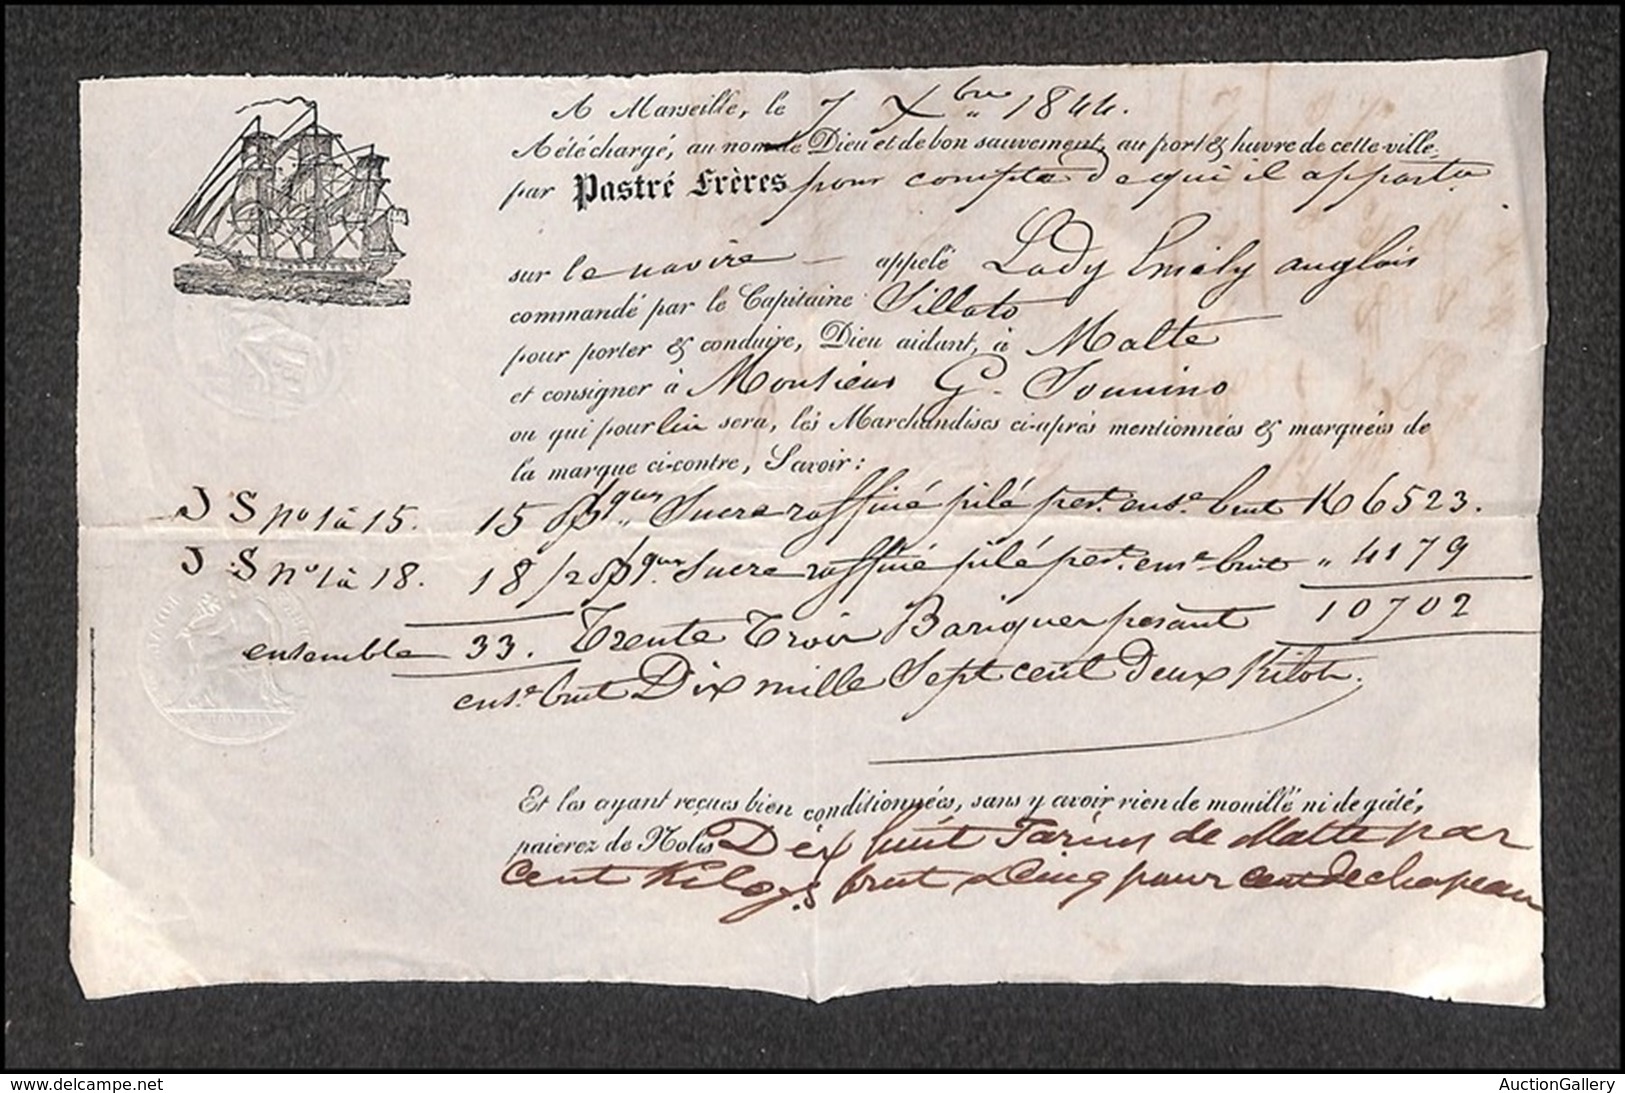 A Marseille, le 7 Xbre 1844.
A été chargé, au nom de Dieu et de bon sauvement, au port & havre de cette ville,
par Pastré Frères pour compte de qui il apportu
sur le navire — appelé Lady Emely anglais
commandé par le Capitaine Sillato
pour porter & conduire, Dieu aidant, à Malte
et consigner à Monsieur G. Sonnino
ou qui pour lui sera, les Marchandises ci-après mentionnées & marquées de
la marque ci-contre, Savoir:
J S no 1 à 15. 15 Sucre raffiné pilé pest. ense. brut K 6523.
J S no 1 à 18. 18/2 Sucre raffiné pilé pest. ense. brut " 4179
ensemble 33. Trente Trois Bariques pesant 10702
ense. brut Dix mille Sept cent Deux Kilos.
Et les ayant reçues bien conditionnées, sans y avoir rien de mouillé ni de gâté,
paierez de Nolis Dix huit Tarins de Malte par
Cent Kilogs. brut & Cinq pour cent de chapeau
www.delcampe.net
AuctionGallery